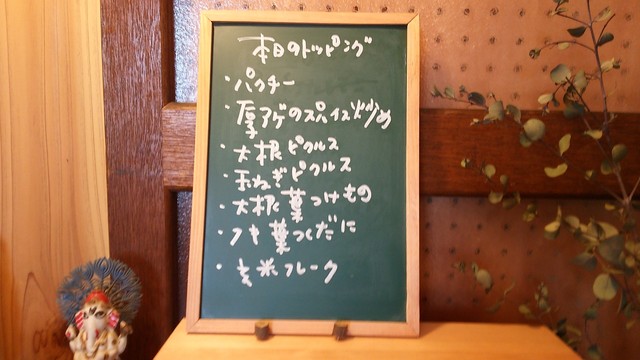 本日のトッピング
・パクチー
・厚アゲのスパイス炒め
・大根ピクルス
・玉ねぎピクルス
・大根葉つけもの
・フキ葉つくだに
・玄米フレーク